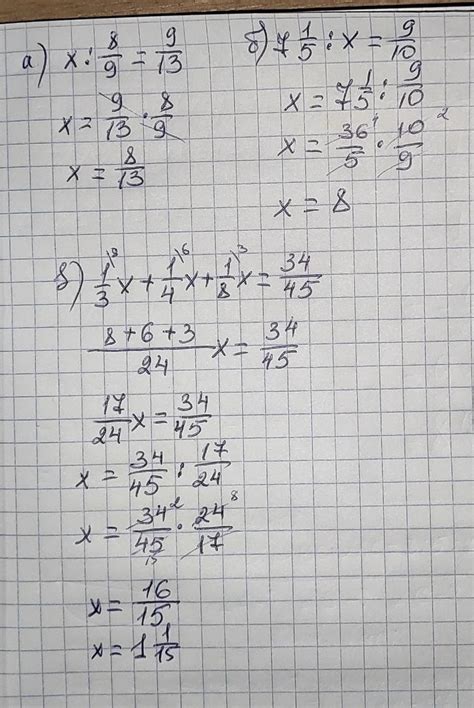 а) x : 8/9 = 9/13
x = 9/13 · 8/9
x = 8/13
б) 7 1/5 : x = 9/10
x = 7 1/5 : 9/10
x = 36/5 · 10/9
x = 8
в) 1/3 x + 1/4 x + 1/8 x = 34/45
8 + 6 + 3 / 24 x = 34/45
17/24 x = 34/45
x = 34/45 : 17/24
x = 34/45 · 24/17
x = 16/15
x = 1 1/15